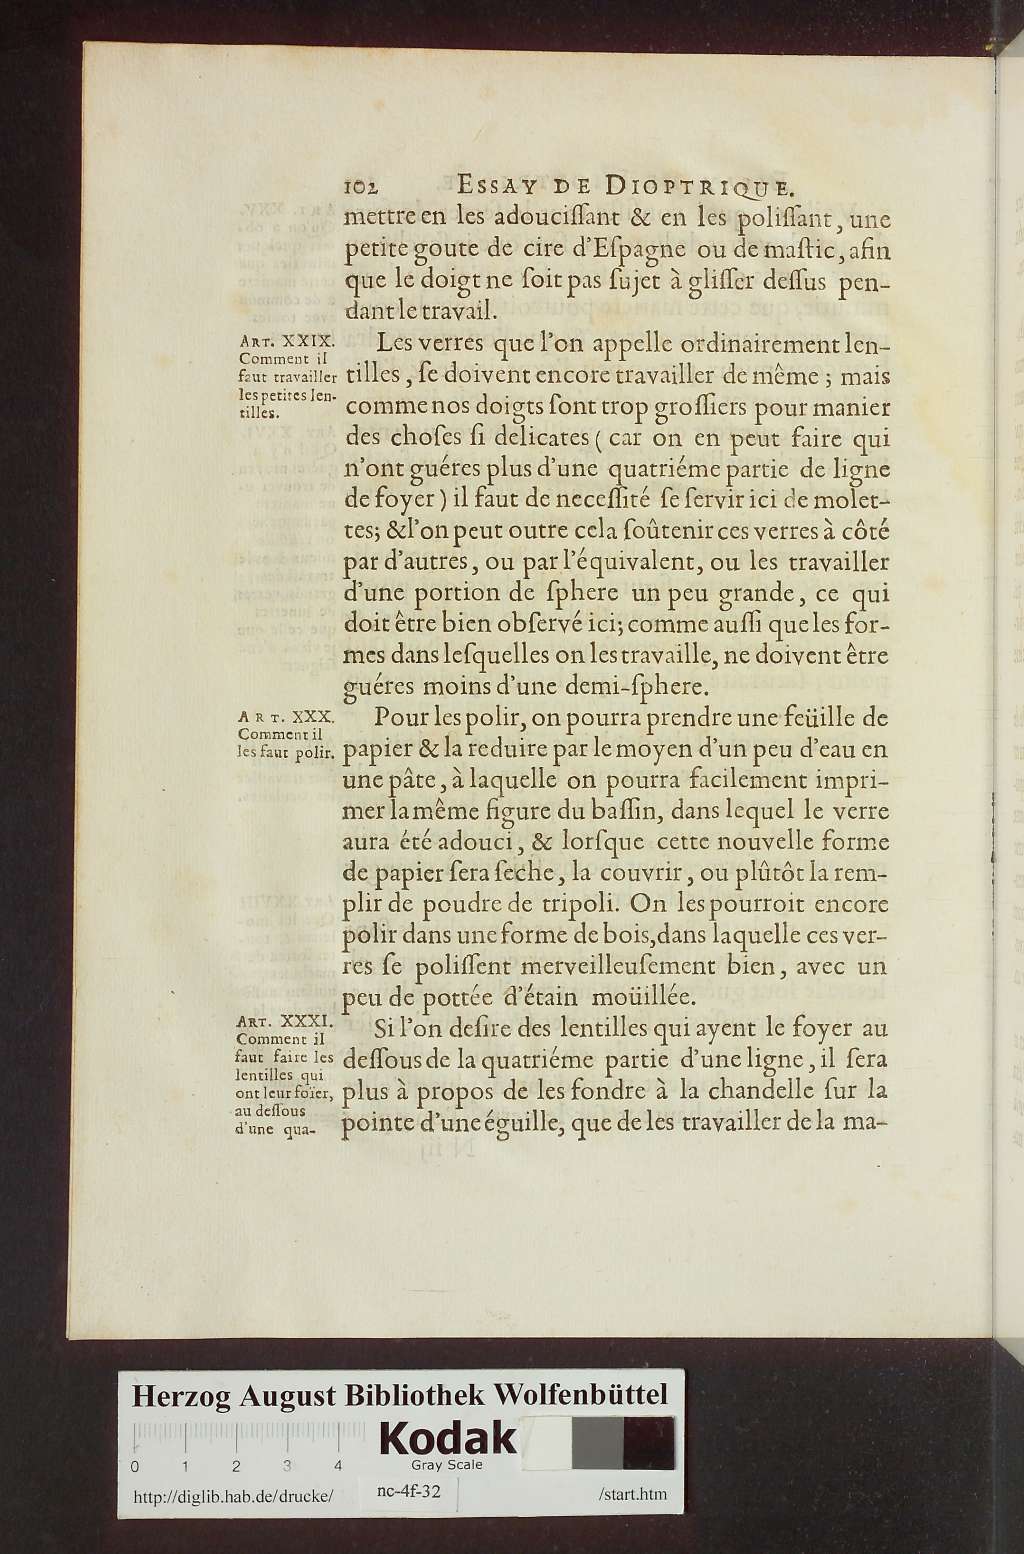 102 ESSAY DE DIOPTRIQUE.
mettre en les adouciſſant & en les poliſſant, une
petite goute de cire d'Eſpagne ou de maſtic, afin
que le doigt ne ſoit pas ſujet à gliſſer deſſus pen-
dant le travail.
ART. XXIX.
Comment il
faut travailler
les petites len-
tilles.
Les verres que l'on appelle ordinairement len-
tilles, ſe doivent encore travailler de même; mais
comme nos doigts ſont trop groſſiers pour manier
des choſes ſi delicates (car on en peut faire qui
n'ont guéres plus d'une quatriéme partie de ligne
de foyer) il faut de neceſſité ſe ſervir ici de molet-
tes; & l'on peut outre cela ſoûtenir ces verres à côté
par d'autres, ou par l'équivalent, ou les travailler
d'une portion de ſphere un peu grande, ce qui
doit être bien obſervé ici; comme auſſi que les for-
mes dans leſquelles on les travaille, ne doivent être
guéres moins d'une demi-ſphere.
ART. XXX.
Comment il
les faut polir.
Pour les polir, on pourra prendre une feüille de
papier & la reduire par le moyen d'un peu d'eau en
une pâte, à laquelle on pourra facilement impri-
mer la même figure du baſſin, dans lequel le verre
aura été adouci, & lorſque cette nouvelle forme
de papier ſera ſeche, la couvrir, ou plûtôt la rem-
plir de poudre de tripoli. On les pourroit encore
polir dans une forme de bois, dans laquelle ces ver-
res ſe poliſſent merveilleuſement bien, avec un
peu de pottée d'étain moüillée.
ART. XXXI.
Comment il
faut faire les
lentilles qui
ont leur foïer,
au deſſous
d'une qua-
Si l'on deſire des lentilles qui ayent le foyer au
deſſous de la quatriéme partie d'une ligne, il ſera
plus à propos de les fondre à la chandelle ſur la
pointe d'une éguille, que de les travailler de la ma-
Herzog August Bibliothek Wolfenbüttel
Kodak
Gray Scale
0 1 2 3 4
http://diglib.hab.de/drucke/ nc-4f-32 /start.htm